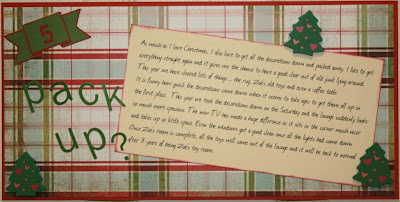 5
pack
up?
As much as I love Christmas, I also love to get all the decorations down and packed away. I like to get
everything straight again and it gives me the chance to have a good clear out of old junk lying around.
This year we have cleared lots of things - the rug, Zoë's old toys and even a coffee table.
It is funny how quick the decorations come down when it seems to take ages to get them all up in
the first place. This year we took the decorations down on the Saturday and the lounge suddenly looks
so much more spacious. The new TV has made a huge difference as it sits in the corner much nicer
and takes up so little space. Even the windows got a good clean once all the lights had come down.
Once Zoë's room is complete, all the toys will come out of the lounge and it will be back to normal
after 3 years of being Zoë's toy room.